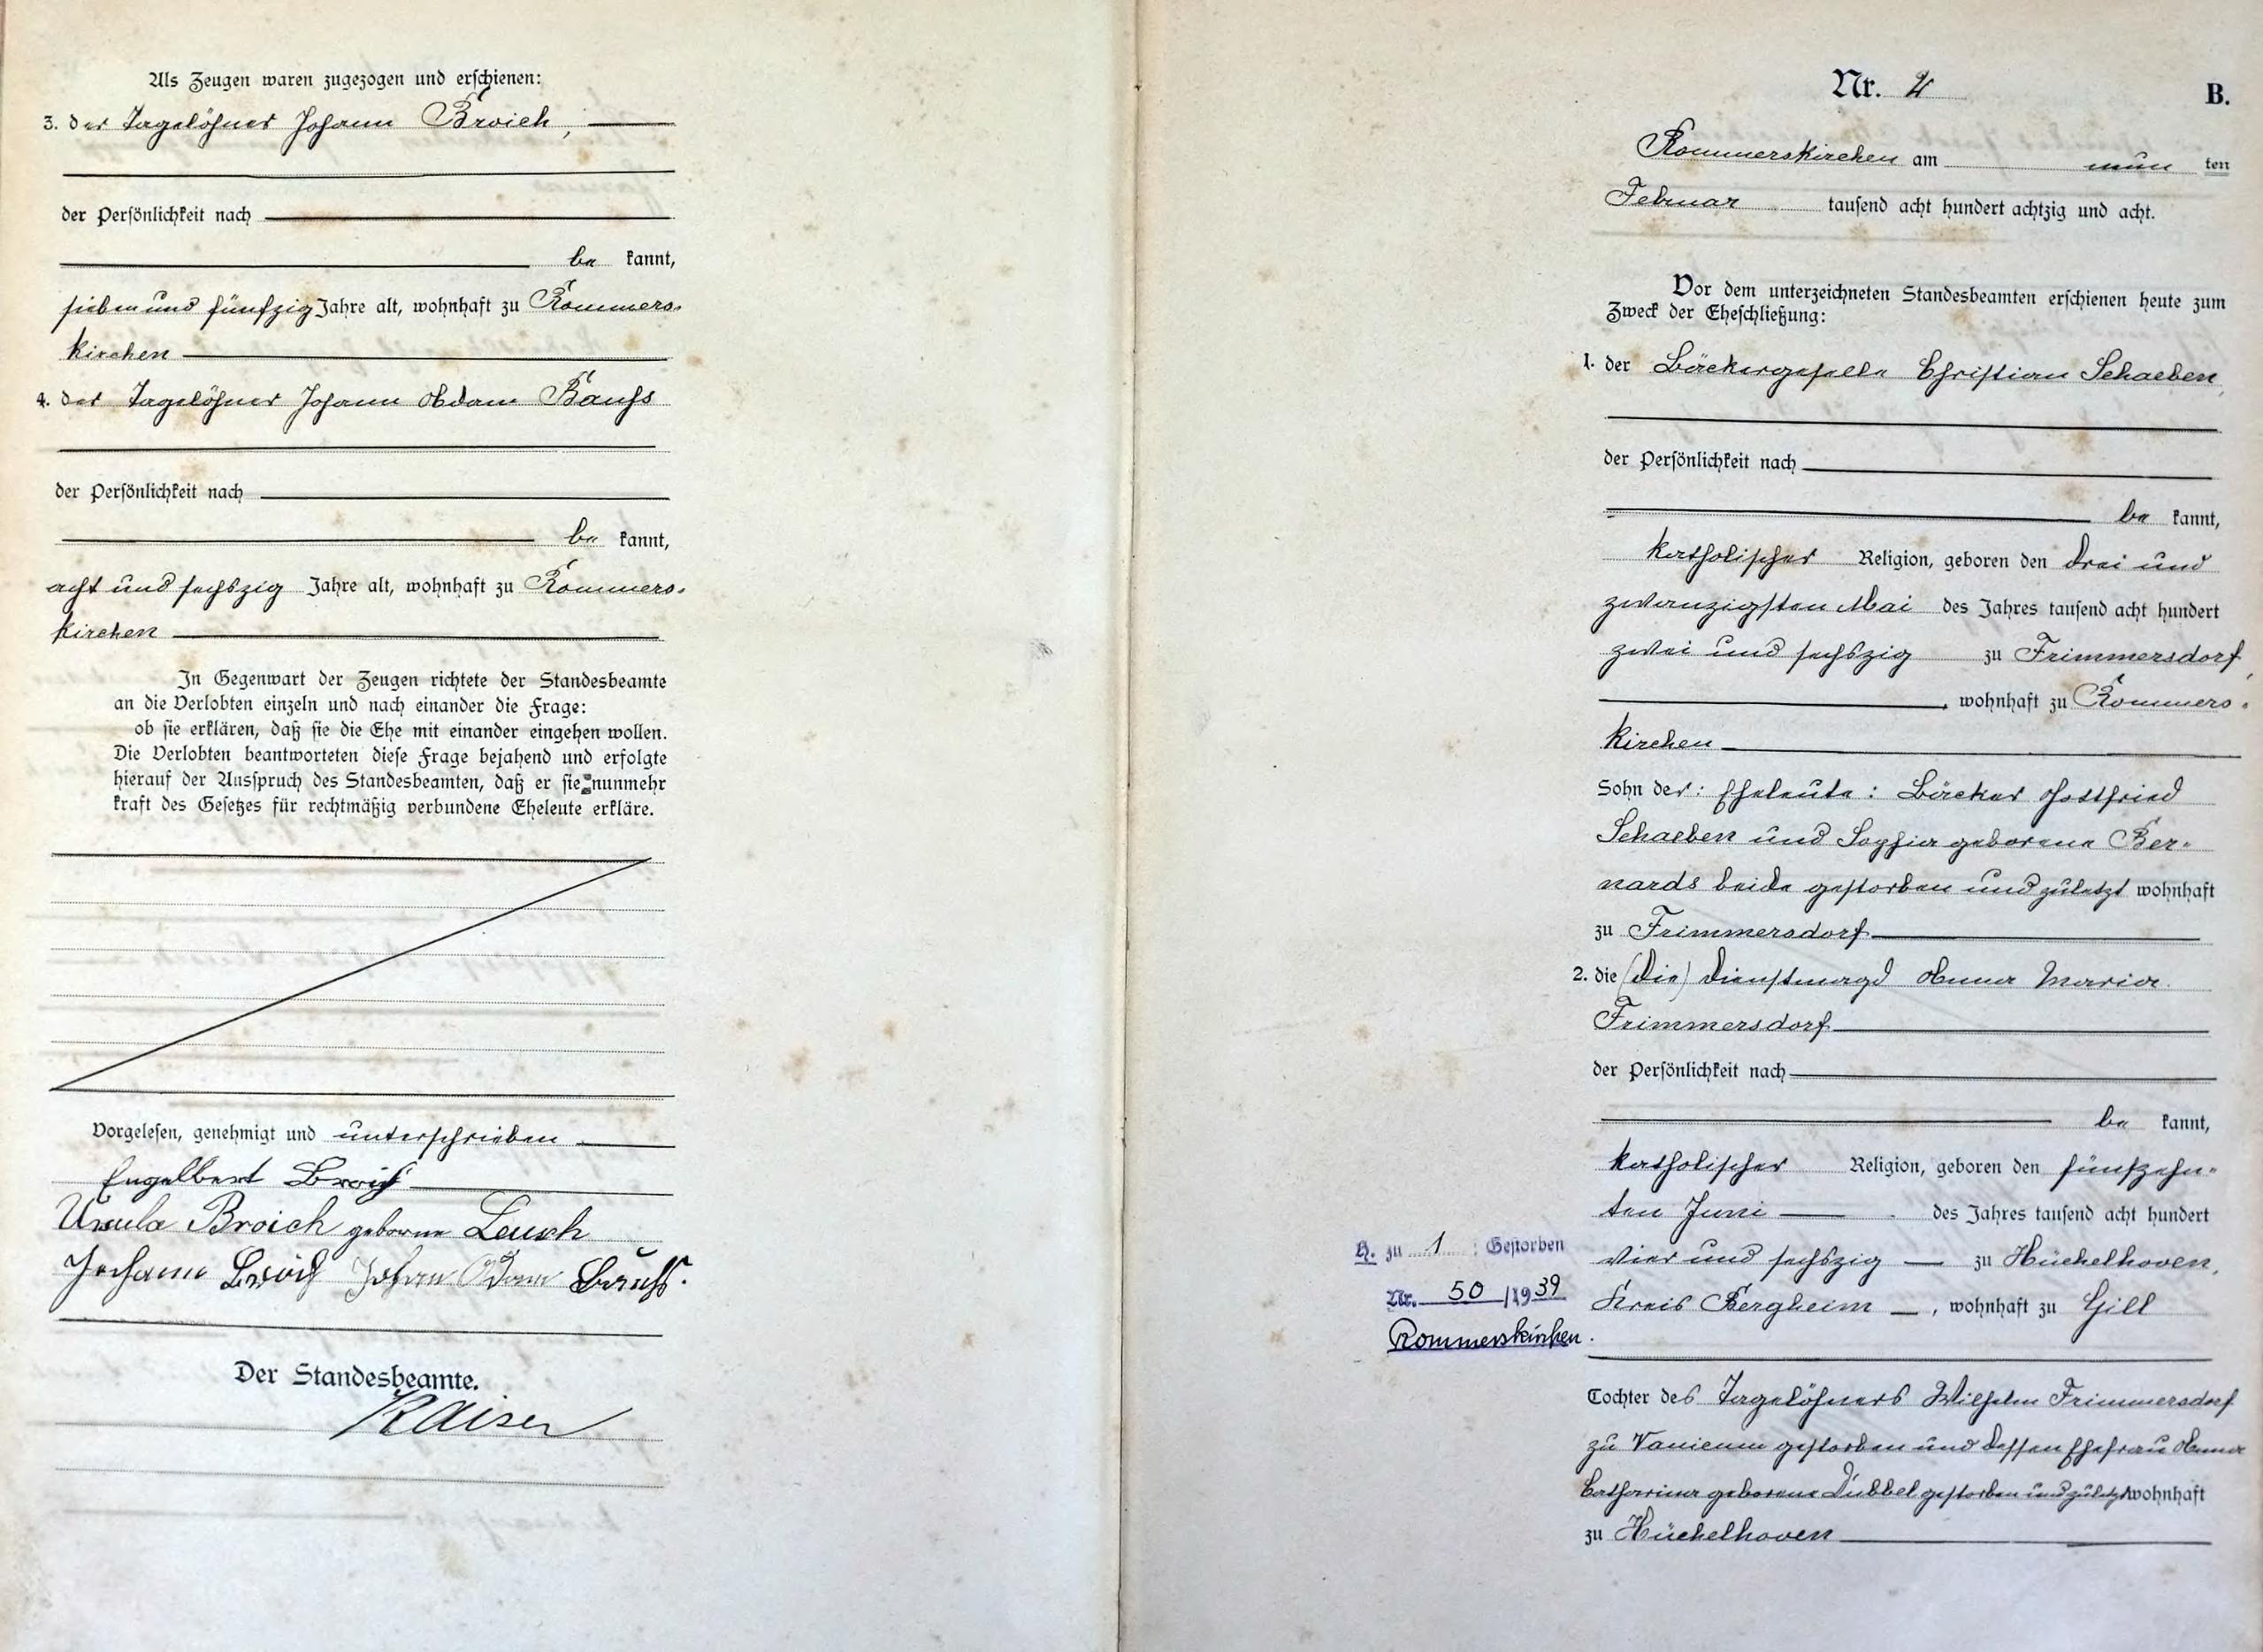 Als Zeugen waren zugezogen und erschienen:
3. der Tagelöhner Johann Broich,
der Persönlichkeit nach
be kannt,
sieben und fünfzig Jahre alt, wohnhaft zu Rommers-
kirchen
4. der Tagelöhner Johann Adam Baufs
der Persönlichkeit nach
be kannt,
acht und sechszig Jahre alt, wohnhaft zu Rommers-
kirchen
In Gegenwart der Zeugen richtete der Standesbeamte
an die Verlobten einzeln und nach einander die Frage:
ob sie erklären, daß sie die Ehe mit einander eingehen wollen.
Die Verlobten beantworteten diese Frage bejahend und erfolgte
hierauf der Ausspruch des Standesbeamten, daß er sie nunmehr
kraft des Gesetzes für rechtmäßig verbundene Eheleute erkläre.
Vorgelesen, genehmigt und unterschrieben
Engelbert Broich
Ursula Broich geborne Leusch
Johann Broich Johan Adam
Der Standesbeamte.
Kaiser
Nr. 4
B.
Rommerskirchen am neun ten
Februar tausend acht hundert achtzig und acht.
Vor dem unterzeichneten Standesbeamten erschienen heute zum
Zweck der Eheschließung:
1. der Bäckergeselle Christian Schaeben,
der Persönlichkeit nach
be kannt,
katholischer Religion, geboren den drei und
zwanzigsten Mai des Jahres tausend acht hundert
zwei und sechszig zu Frimmersdorf,
, wohnhaft zu Rommers-
kirchen
Sohn der: Eheleute: Bäcker Gottfried
Schaeben und Sophia geborene Ber-
nards beide gestorben und zuletzt wohnhaft
zu Frimmersdorf
2. die (die) Dienstmagd Anna Maria
Frimmersdorf
der Persönlichkeit nach
be kannt,
katholischer Religion, geboren den fünfzehn-
ten Juni des Jahres tausend acht hundert
vier und sechszig zu Hüchelhoven,
Kreis Bergheim , wohnhaft zu Gill
Tochter des Tagelöhners Wilhelm Frimmersdorf
zu Vanicum gestorben und dessen Ehefrau Anna
Catharina geborene Dübbel gestorben und zuletzt wohnhaft
zu Hüchelhoven
H. zu 1 : Gestorben
Nr. 50 /1939
Rommerskirchen.